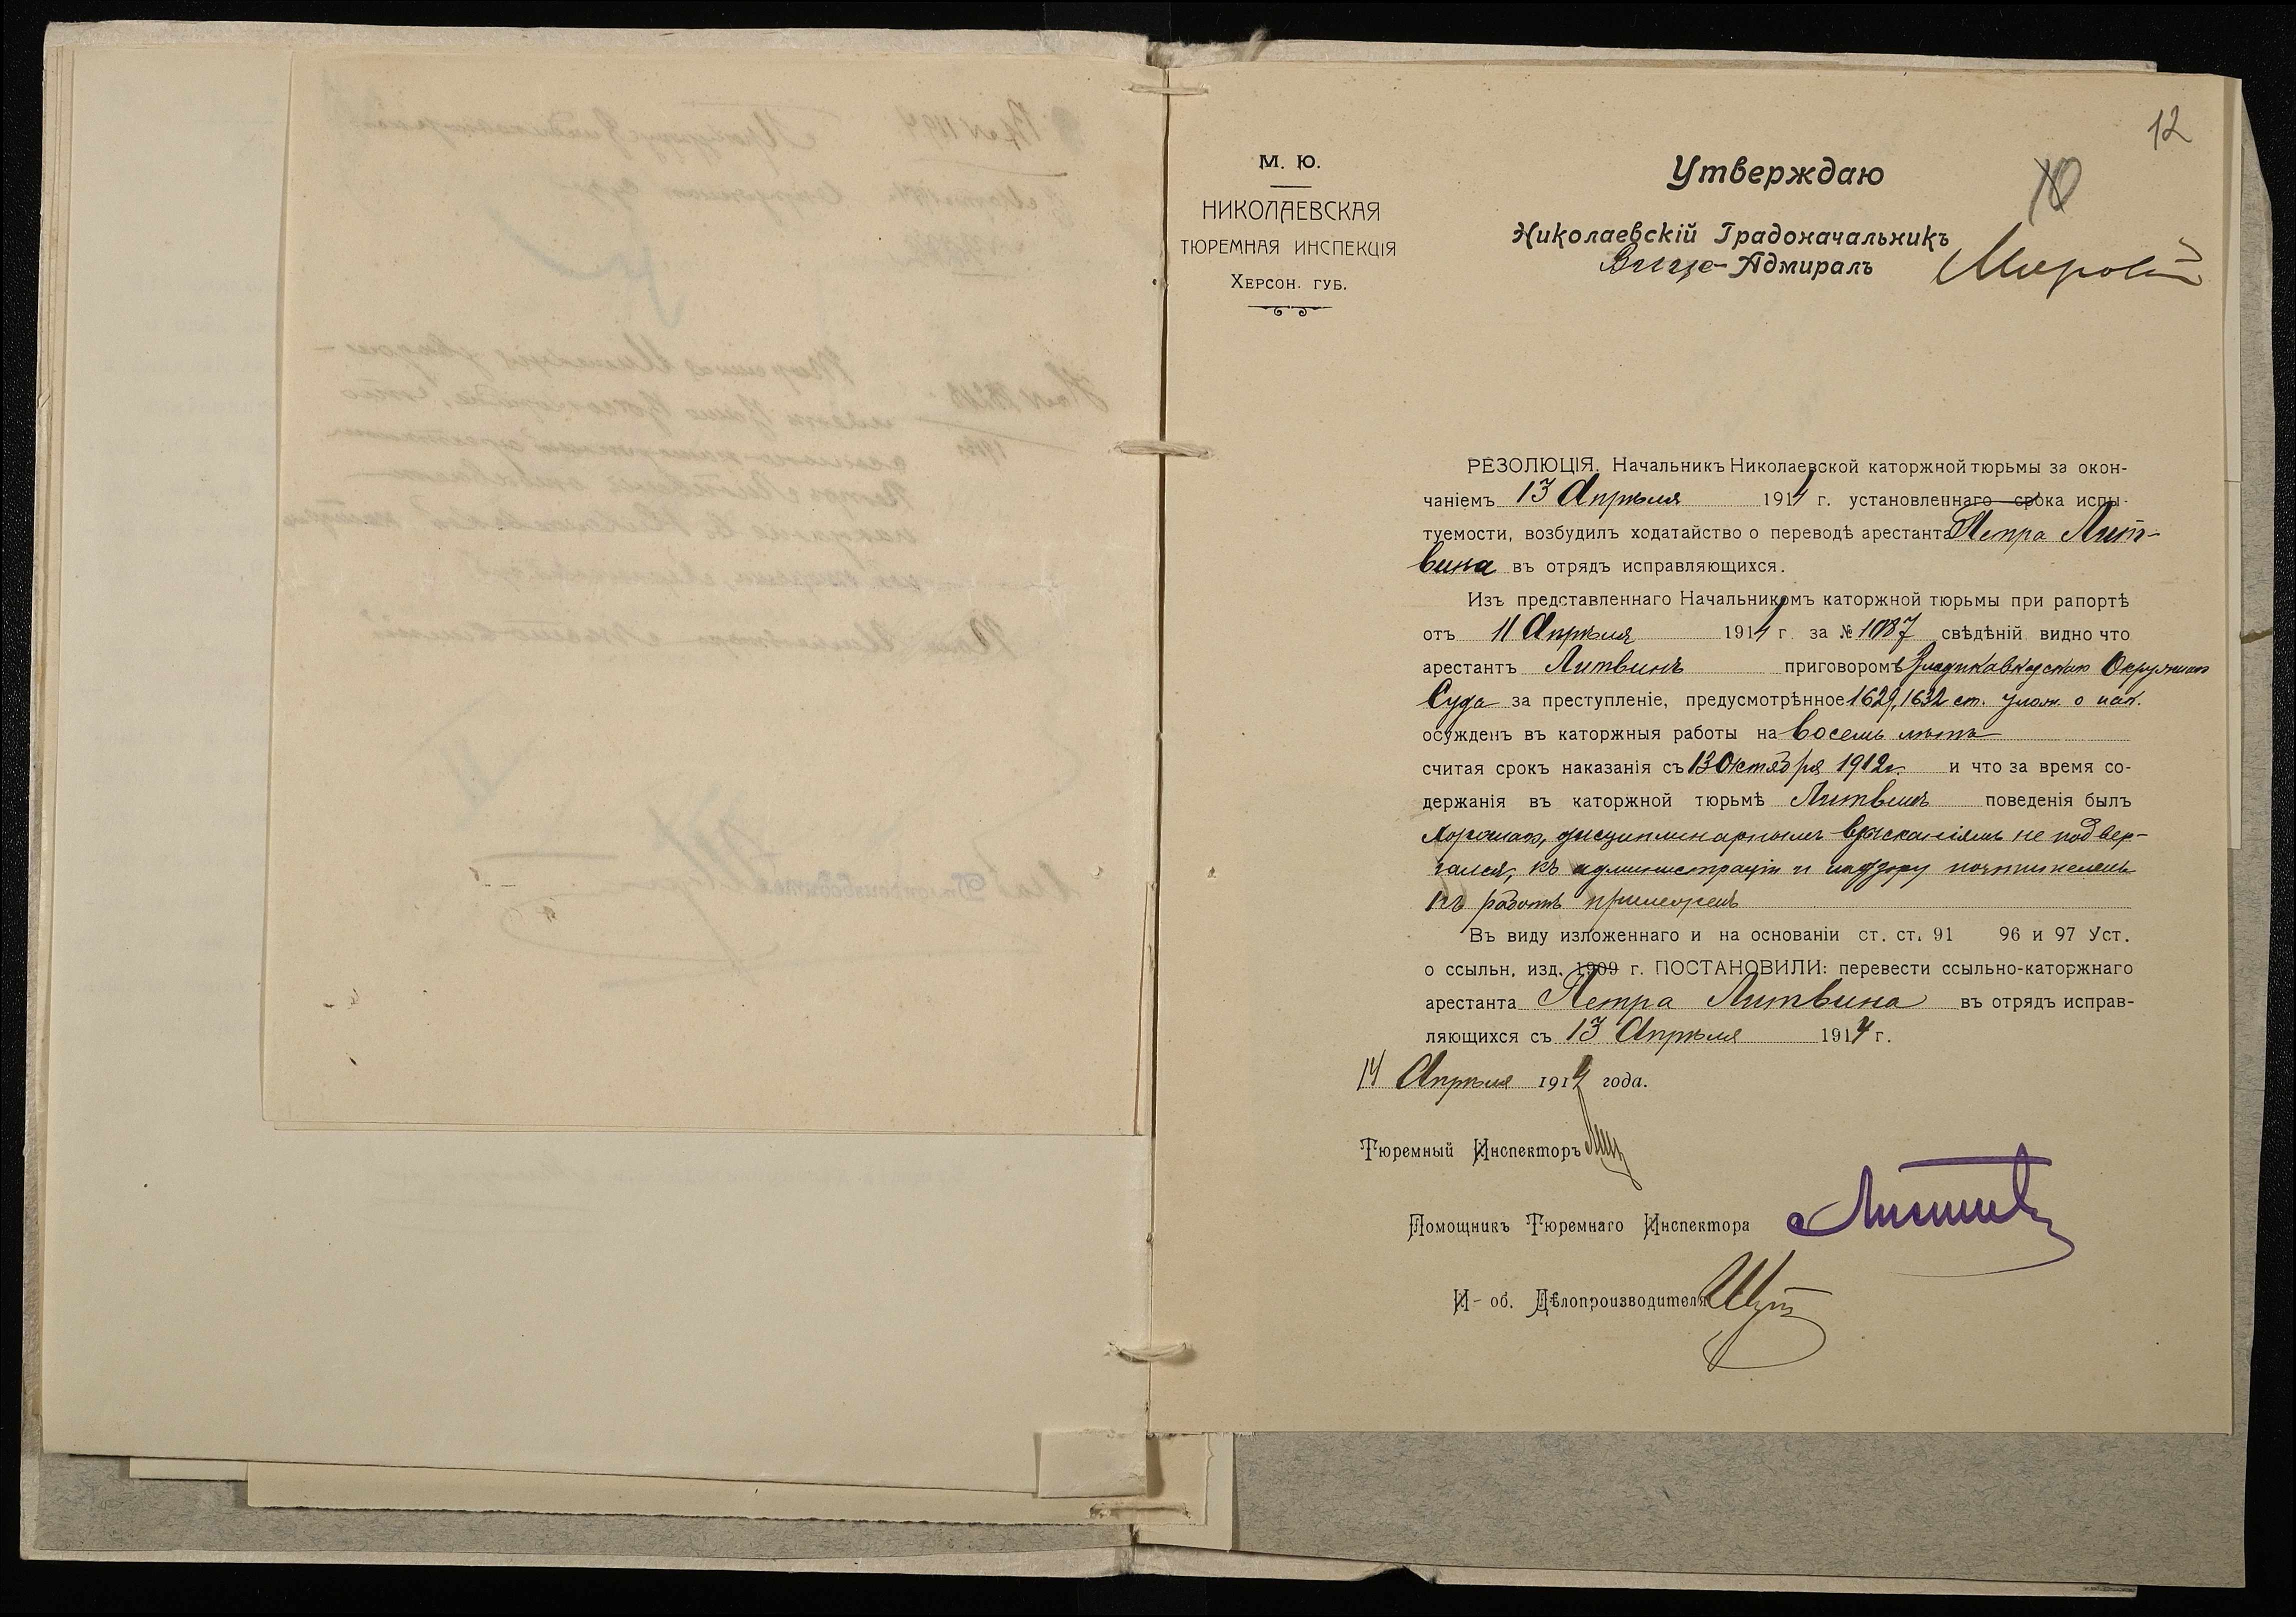 12
10
М. Ю.
НИКОЛАЕВСКАЯ
ТЮРЕМНАЯ ИНСПЕКЦІЯ
ХЕРСОН. ГУБ.
Утверждаю
Николаевскій Градоначальникъ
Вице-Адмиралъ
РЕЗОЛЮЦІЯ. Начальникъ Николаевской каторжной тюрьмы за окон-
чаніемъ 13 Апрѣля 1914 г. установленнаго срока испы-
туемости, возбудилъ ходатайство о переводѣ арестанта Петра Лит-
вина въ отрядъ исправляющихся.
Изъ представленнаго Начальникомъ каторжной тюрьмы при рапортѣ
отъ 11 Апрѣля 1914 г. за № 1087 свѣдѣній видно что
арестантъ Литвинъ приговоромъ Владикавказскаго Окружнаго
Суда за преступленіе, предусмотрѣнное 1629, 1632 ст. улож. о нак.
осужденъ въ каторжныя работы на восемь лѣтъ
считая срокъ наказанія съ 13 Октября 1912 г. и что за время со-
держанія въ каторжной тюрьмѣ Литвинъ поведенія былъ
хорошаго, дисциплинарнымъ взысканіямъ не подвер-
гался, къ администраціи и надзору почтителенъ
къ работѣ прилеженъ
Въ виду изложеннаго и на основаніи ст. ст. 91 96 и 97 Уст.
о ссыльн, изд. 1909 г. ПОСТАНОВИЛИ: перевести ссыльно-каторжнаго
арестанта Петра Литвина въ отрядъ исправ-
ляющихся съ 13 Апрѣля 1914 г.
14 Апрѣля 1914 года.
Тюремный Инспекторъ
Помощникъ Тюремнаго Инспектора
И-об. Дѣлопроизводителя